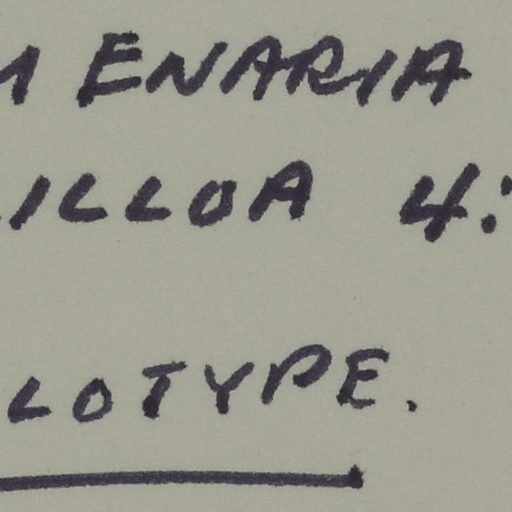 ENARIA
ILLOA 4:
LOTYPE.